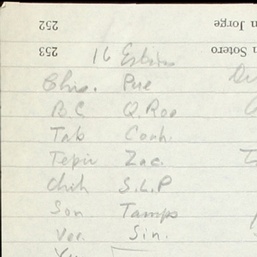 252 n Jorge
253 n Sotero
16 Estados
Chis. Pue
B.C Q. Roo
Tab Coah.
Tepic Zac.
Chih S.L.P
Son. Tamps
Ver. Sin.